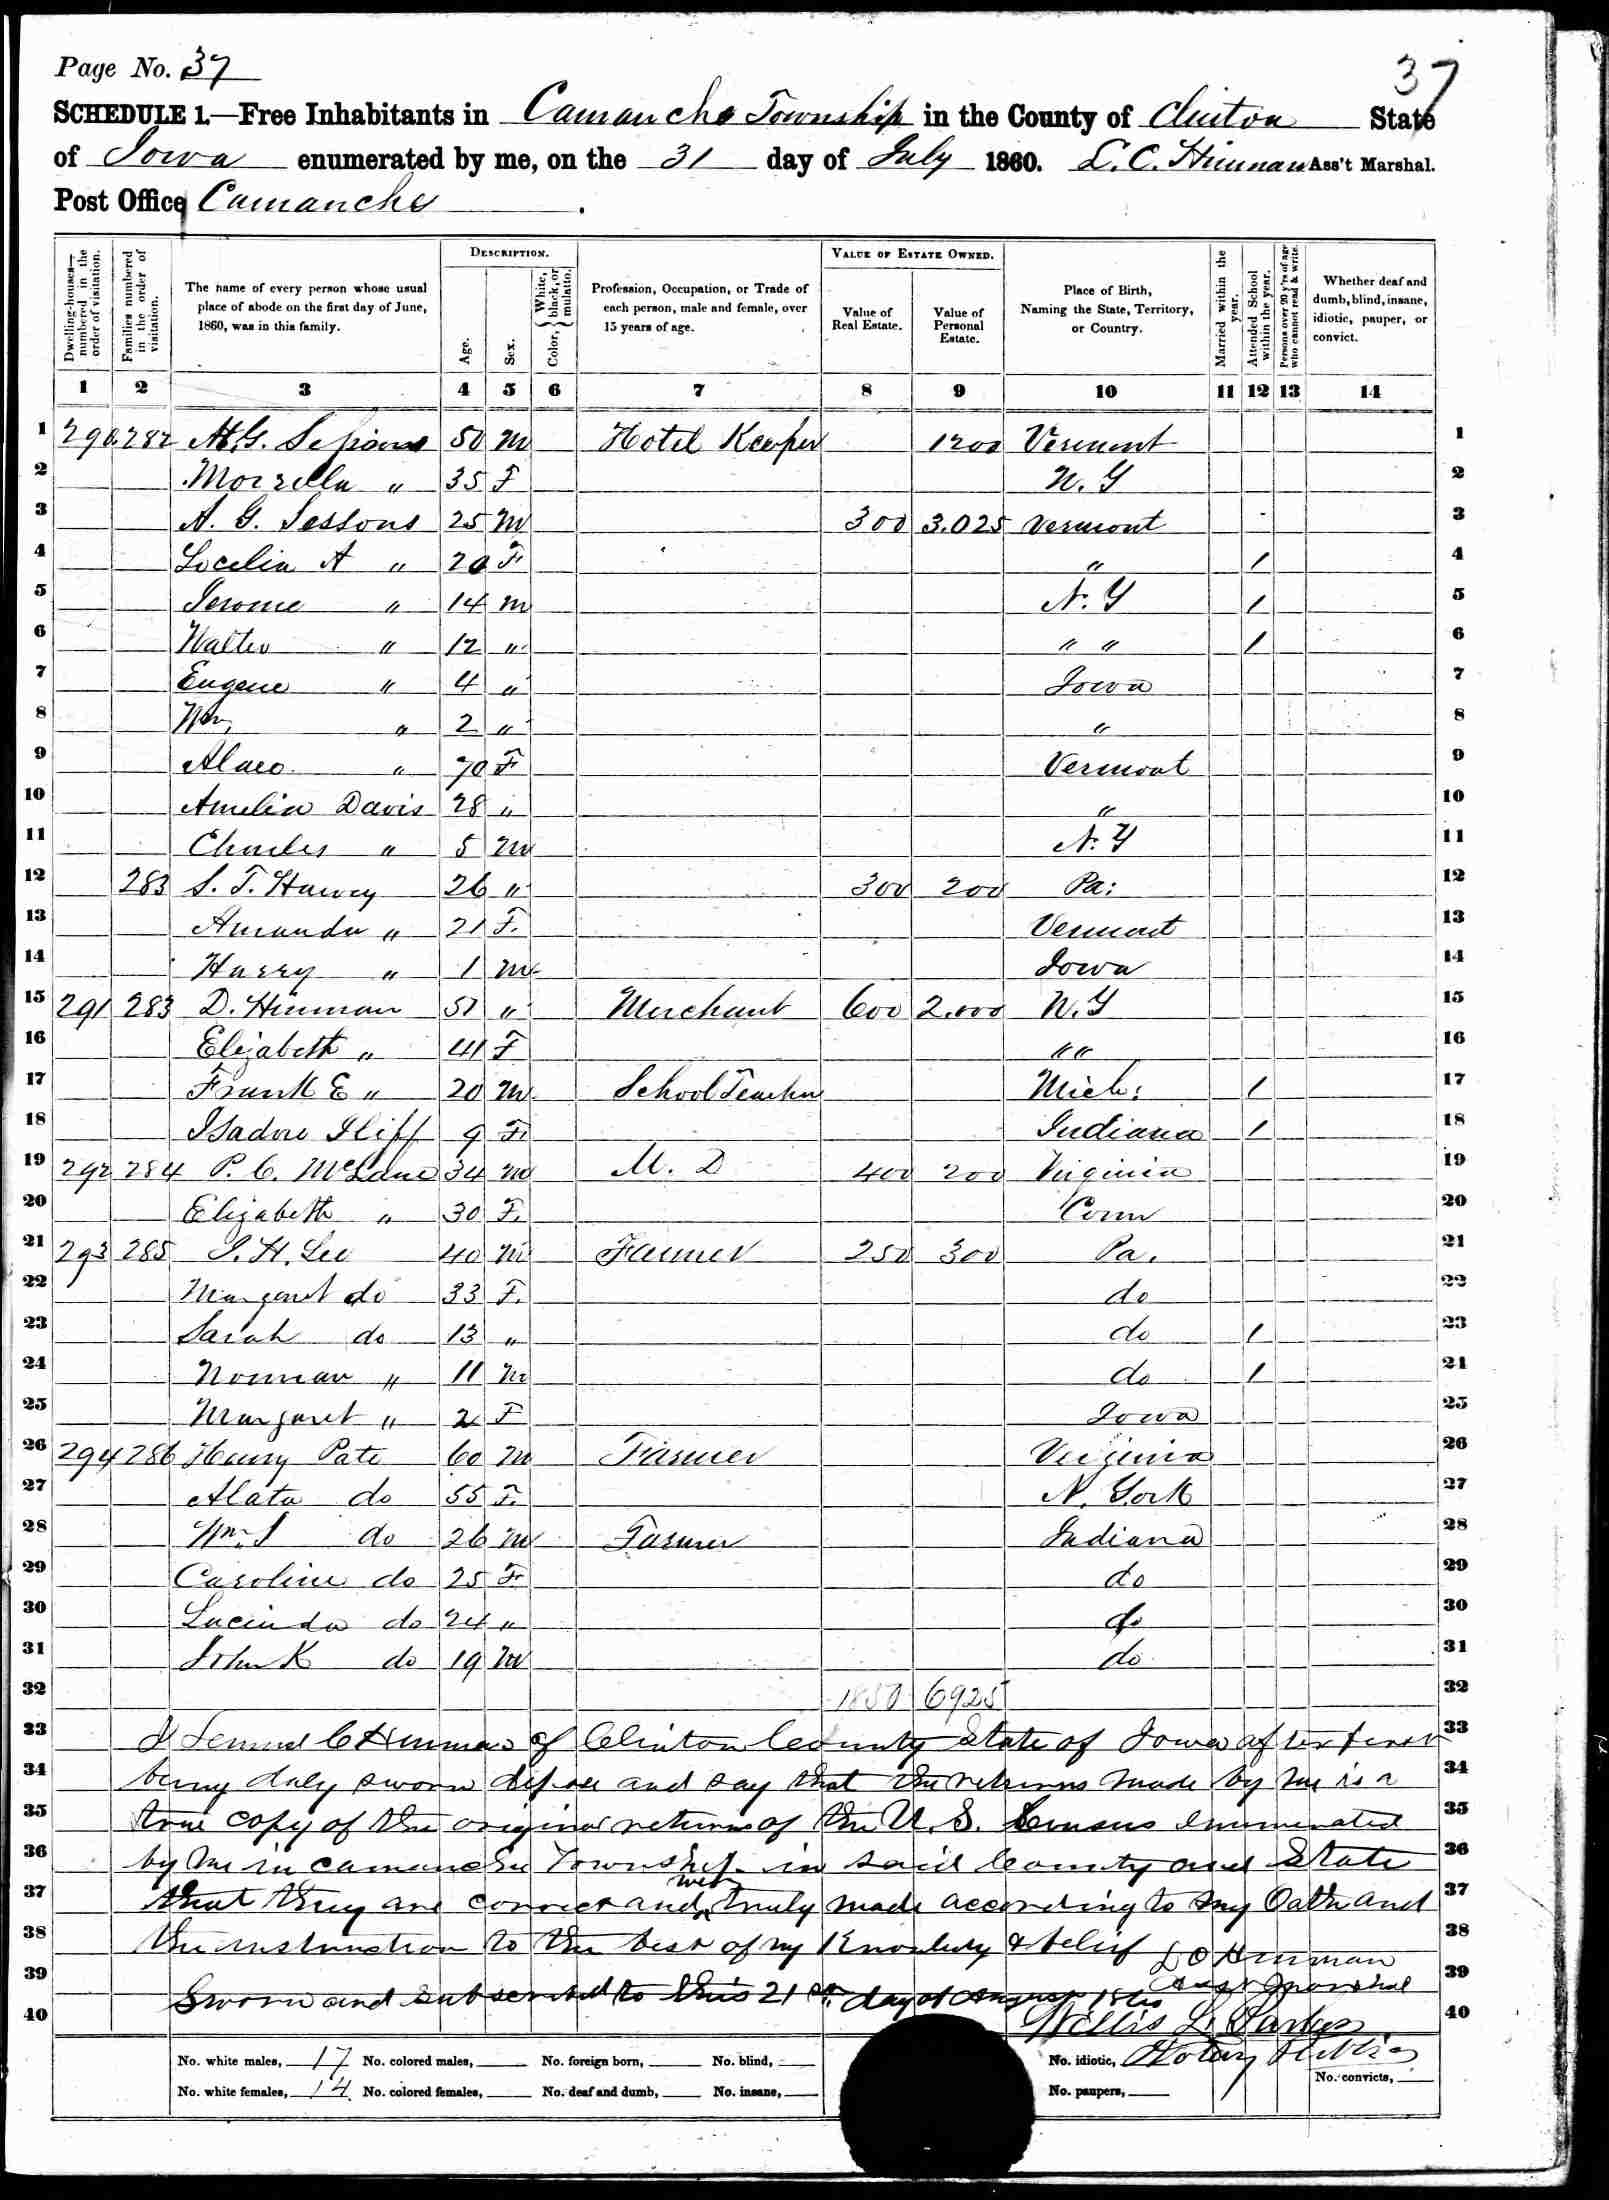 Page No. 37
37
SCHEDULE 1.—Free Inhabitants in Camanche Township in the County of Clinton State
of Iowa enumerated by me, on the 31 day of July 1860. L. C. Hinman Ass't Marshal.
Post Office Camanche.
Dwelling-houses—numbered in the order of visitation.
Families numbered in the order of visitation.
The name of every person whose usual place of abode on the first day of June, 1860, was in this family.
DESCRIPTION.
Age.
Sex.
Color, White, black, or mulatto.
Profession, Occupation, or Trade of each person, male and female, over 15 years of age.
VALUE OF ESTATE OWNED.
Value of Real Estate.
Value of Personal Estate.
Place of Birth, Naming the State, Territory, or Country.
Married within the year.
Attended School within the year.
Persons over 20 y'rs of age who cannot read & write.
Whether deaf and dumb, blind, insane, idiotic, pauper, or convict.
1 2 3 4 5 6 7 8 9 10 11 12 13 14
1 290 282 G. 50 M Hotel Keeper 1200 Vermont 1
2 " 35 F N. Y 2
3 A. G. Sessons 25 M 300 3.025 Vermont 3
4 Locelia A " 20 F. " / 4
5 Jerome " 14 M N. Y / 5
6 Walter " 12 " " " / 6
7 Eugene " 4 " Iowa 7
8 Wm. " 2 " " 8
9 " 70 F Vermont 9
10 Amelia Davis 28 " " 10
11 Charles " 5 M N. Y 11
12 283 S. T. Harvey 26 " 300 200 Pa: 12
13 Amanda " 21 F. Vermont 13
14 Harry " 1 M Iowa 14
15 291 283 D. Hinman 51 " Merchant 600 2.000 N. Y 15
16 Elizabeth " 41 F " " 16
17 Frank E " 20 M School Teacher Mich: / 17
18 Isadore Iliff 9 F. Indiana / 18
19 292 284 P. C. McLane 34 M M. D 400 200 Virginia 19
20 Elizabeth " 30 F. Conn 20
21 293 285 H. Lee 40 M Farmer 250 300 Pa. 21
22 Margaret do 33 F. do 22
23 Sarah do 13 " do / 23
24 Norman " 11 M do / 24
25 Margaret " 2 F Iowa 25
26 294 286 Henry Pate 60 M Farmer Virginia 26
27 Alata do 55 F. N. York 27
28 Wm. do 26 M Farmer Indiana 28
29 Caroline do 25 F do 29
30 Lucinda do 24 " do 30
31 John K do 19 M do 31
32 1850 6925 32
33 I Lemuel C Hinman of Clinton County State of Iowa after first 33
34 being duly sworn depose and say that the returns made by me is a 34
35 true copy of the original returns of the U. S. Census enumerated 35
36 by me in Camanche Township in said County and State 36
37 that they are correct and were truly made according to my Oath and 37
38 the instruction to the best of my Knowledg & belief L C Hinman 38
39 Asst Marshal 39
40 Sworn and subscribed to this 21st day of August 1860 40
Willis L.
Notary Public
No. white males, 17 No. colored males, No. foreign born, No. blind, No. idiotic,
No. white females, 14 No. colored females, No. deaf and dumb, No. insane, No. paupers, No. convicts,